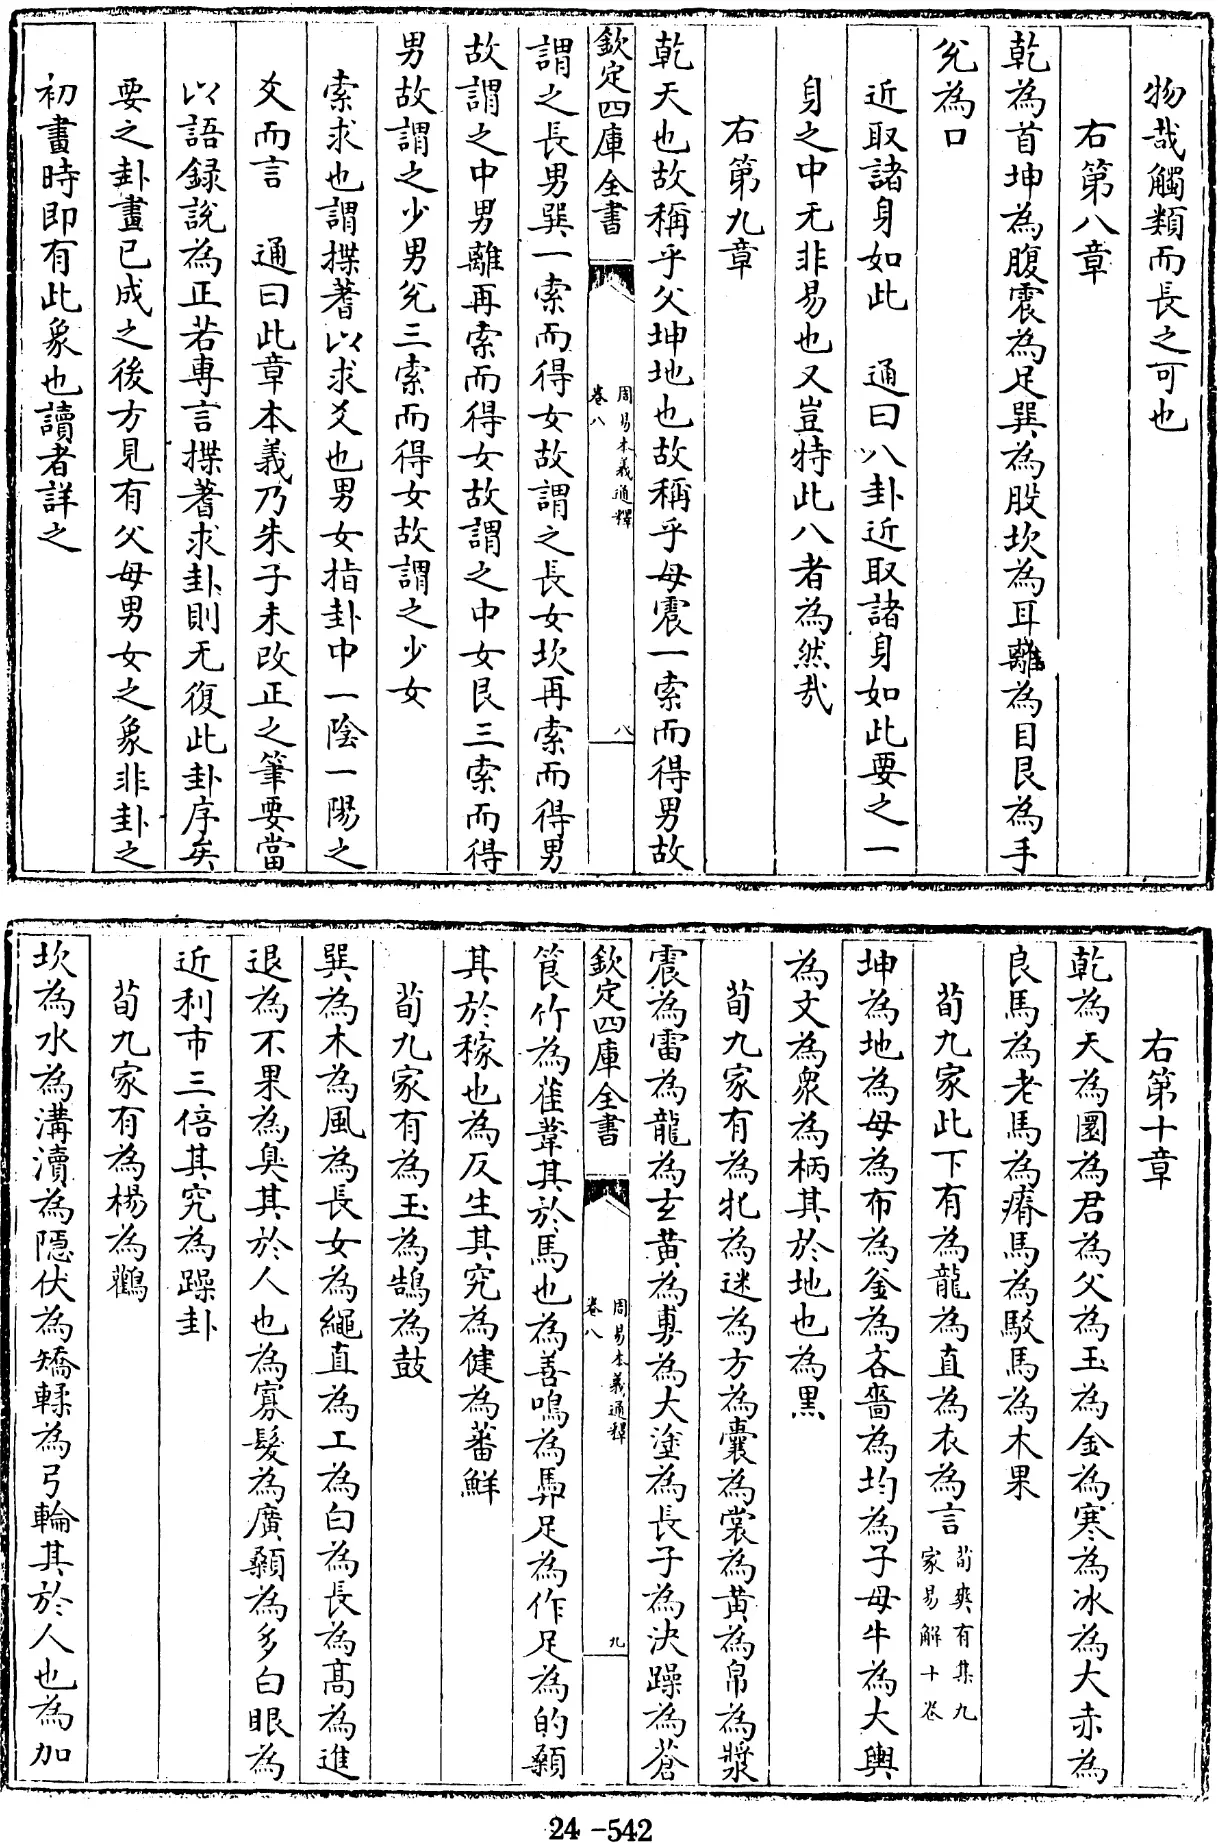 物哉觸類而長之可也
右第八章
乾為首坤為腹震為足巽為股坎為耳離為目艮為手
兊為口
近取諸身如此　通曰八卦近取諸身如此要之一
身之中无非易也又豈特此八者為然哉
右第九章
乾天也故稱乎父坤地也故稱乎母震一索而得男故
欽定四庫全書
周易本義通釋
卷八
八
謂之長男巽一索而得女故謂之長女坎再索而得男
故謂之中男離再索而得女故謂之中女艮三索而得
男故謂之少男兊三索而得女故謂之少女
索求也謂揲蓍以求爻也男女指卦中一陰一陽之
爻而言　通曰此章本義乃朱子未改正之筆要當
以語録說為正若專言揲蓍求卦則无復此卦序矣
要之卦畫已成之後方見有父母男女之象非卦之
初畫時即有此象也讀者詳之
右第十章
乾為天為圜為君為父為玉為金為寒為冰為大赤為
良馬為老馬為瘠馬為駁馬為木果
荀九家此下有為龍為直為衣為言
荀爽有集九
家易解十卷
坤為地為母為布為釜為吝嗇為均為子母牛為大輿
為文為衆為柄其於地也為黑
荀九家有為牝為迷為方為囊為裳為黄為帛為漿
震為雷為龍為玄黄為旉為大塗為長子為決躁為蒼
欽定四庫全書
周易本義通釋
卷八
九
筤竹為萑葦其於馬也為善鳴為馵足為作足為的顙
其於稼也為反生其究為健為蕃鮮
荀九家有為玉為鵠為鼓
巽為木為風為長女為繩直為工為白為長為高為進
退為不果為臭其於人也為寡髮為廣顙為多白眼為
近利市三倍其究為躁卦
荀九家有為楊為鸛
坎為水為溝瀆為隠伏為矯輮為弓輪其於人也為加
24-542